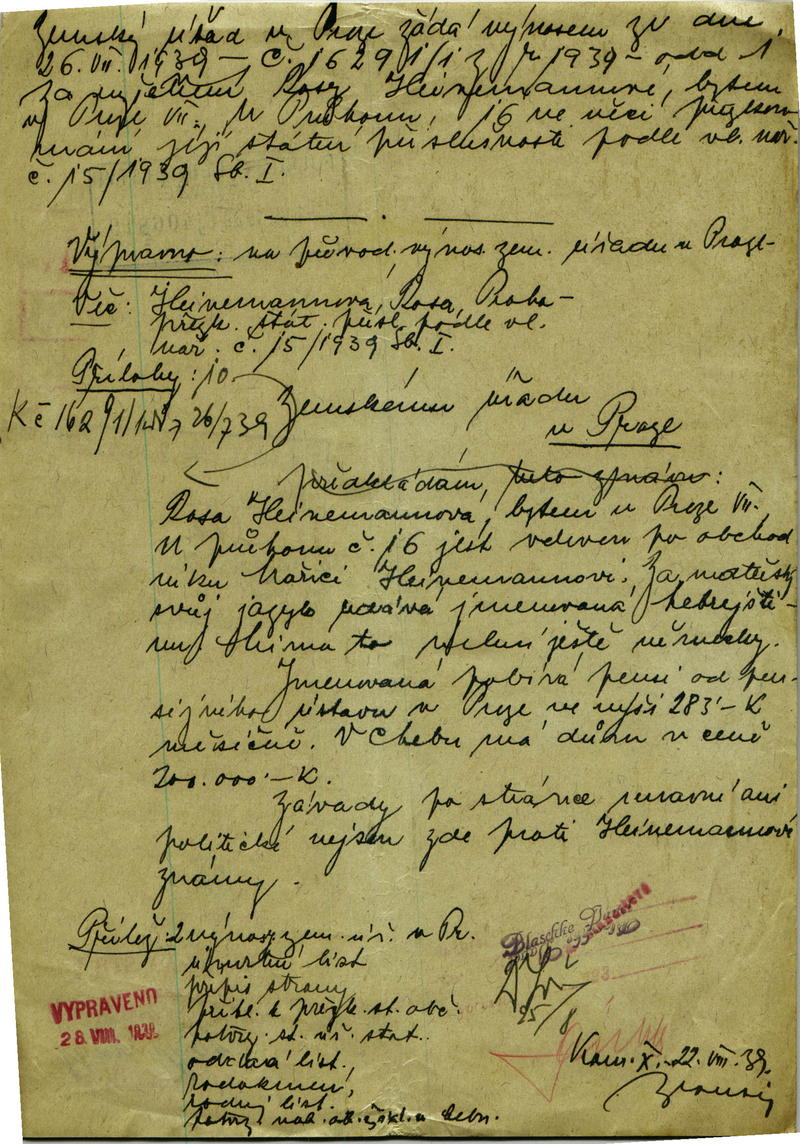 Zemský úřad v Praze žádá výnosem ze dne
26. VII. 1939 – č. 16291/1 z r. 1939 – odd. 1
Rosy Heinemannové, bytem
v Praze VII., U Průhonu, 16 ve věci přezkou-
mání její státní příslušnosti podle vl. nař.
č. 15/1939 Sb. I.
Výpravno: na původ. výnos. zem. úřadu v Praze
Věc: Heinemannová, Rosa, Praha –
přezk. stát. přísl. podle vl.
nař. č. 15/1939 Sb. I.
Přílohy: 10
K č 16291/ 26/7 39
Zemskému úřadu
v Praze
předkládám, tuto zprávu:
Rosa Heinemannová, bytem v Praze VII.,
U průhonu č. 16 jest vdovou po obchod
níku Heinemannovi. Za mateřský
svůj jazyk udává jmenovaná hebrejšti-
nu, mluví ještě německy.
Jmenovaná pobírá pensi od pen-
sijního ústavu v Praze ve výši 283'– K
měsíčně. V Chebu má dům v ceně
200.000'– K.
Závady po stránce mravní ani
politické nejsou zde proti Heinemannové
známy.
Přílož: 2 výnosy zem. úř. v Pr.
úmrtní list
přípis strany
přihl. k přezk. st. obč.
potvrz. st. úř. stat.
oddací list,
rodokmen,
rodný list.
potvrz. náb. ob. žid. v Chebu.
VYPRAVENO
28. VIII. 1939
25/8
Kom. X. 22. VIII. 39.